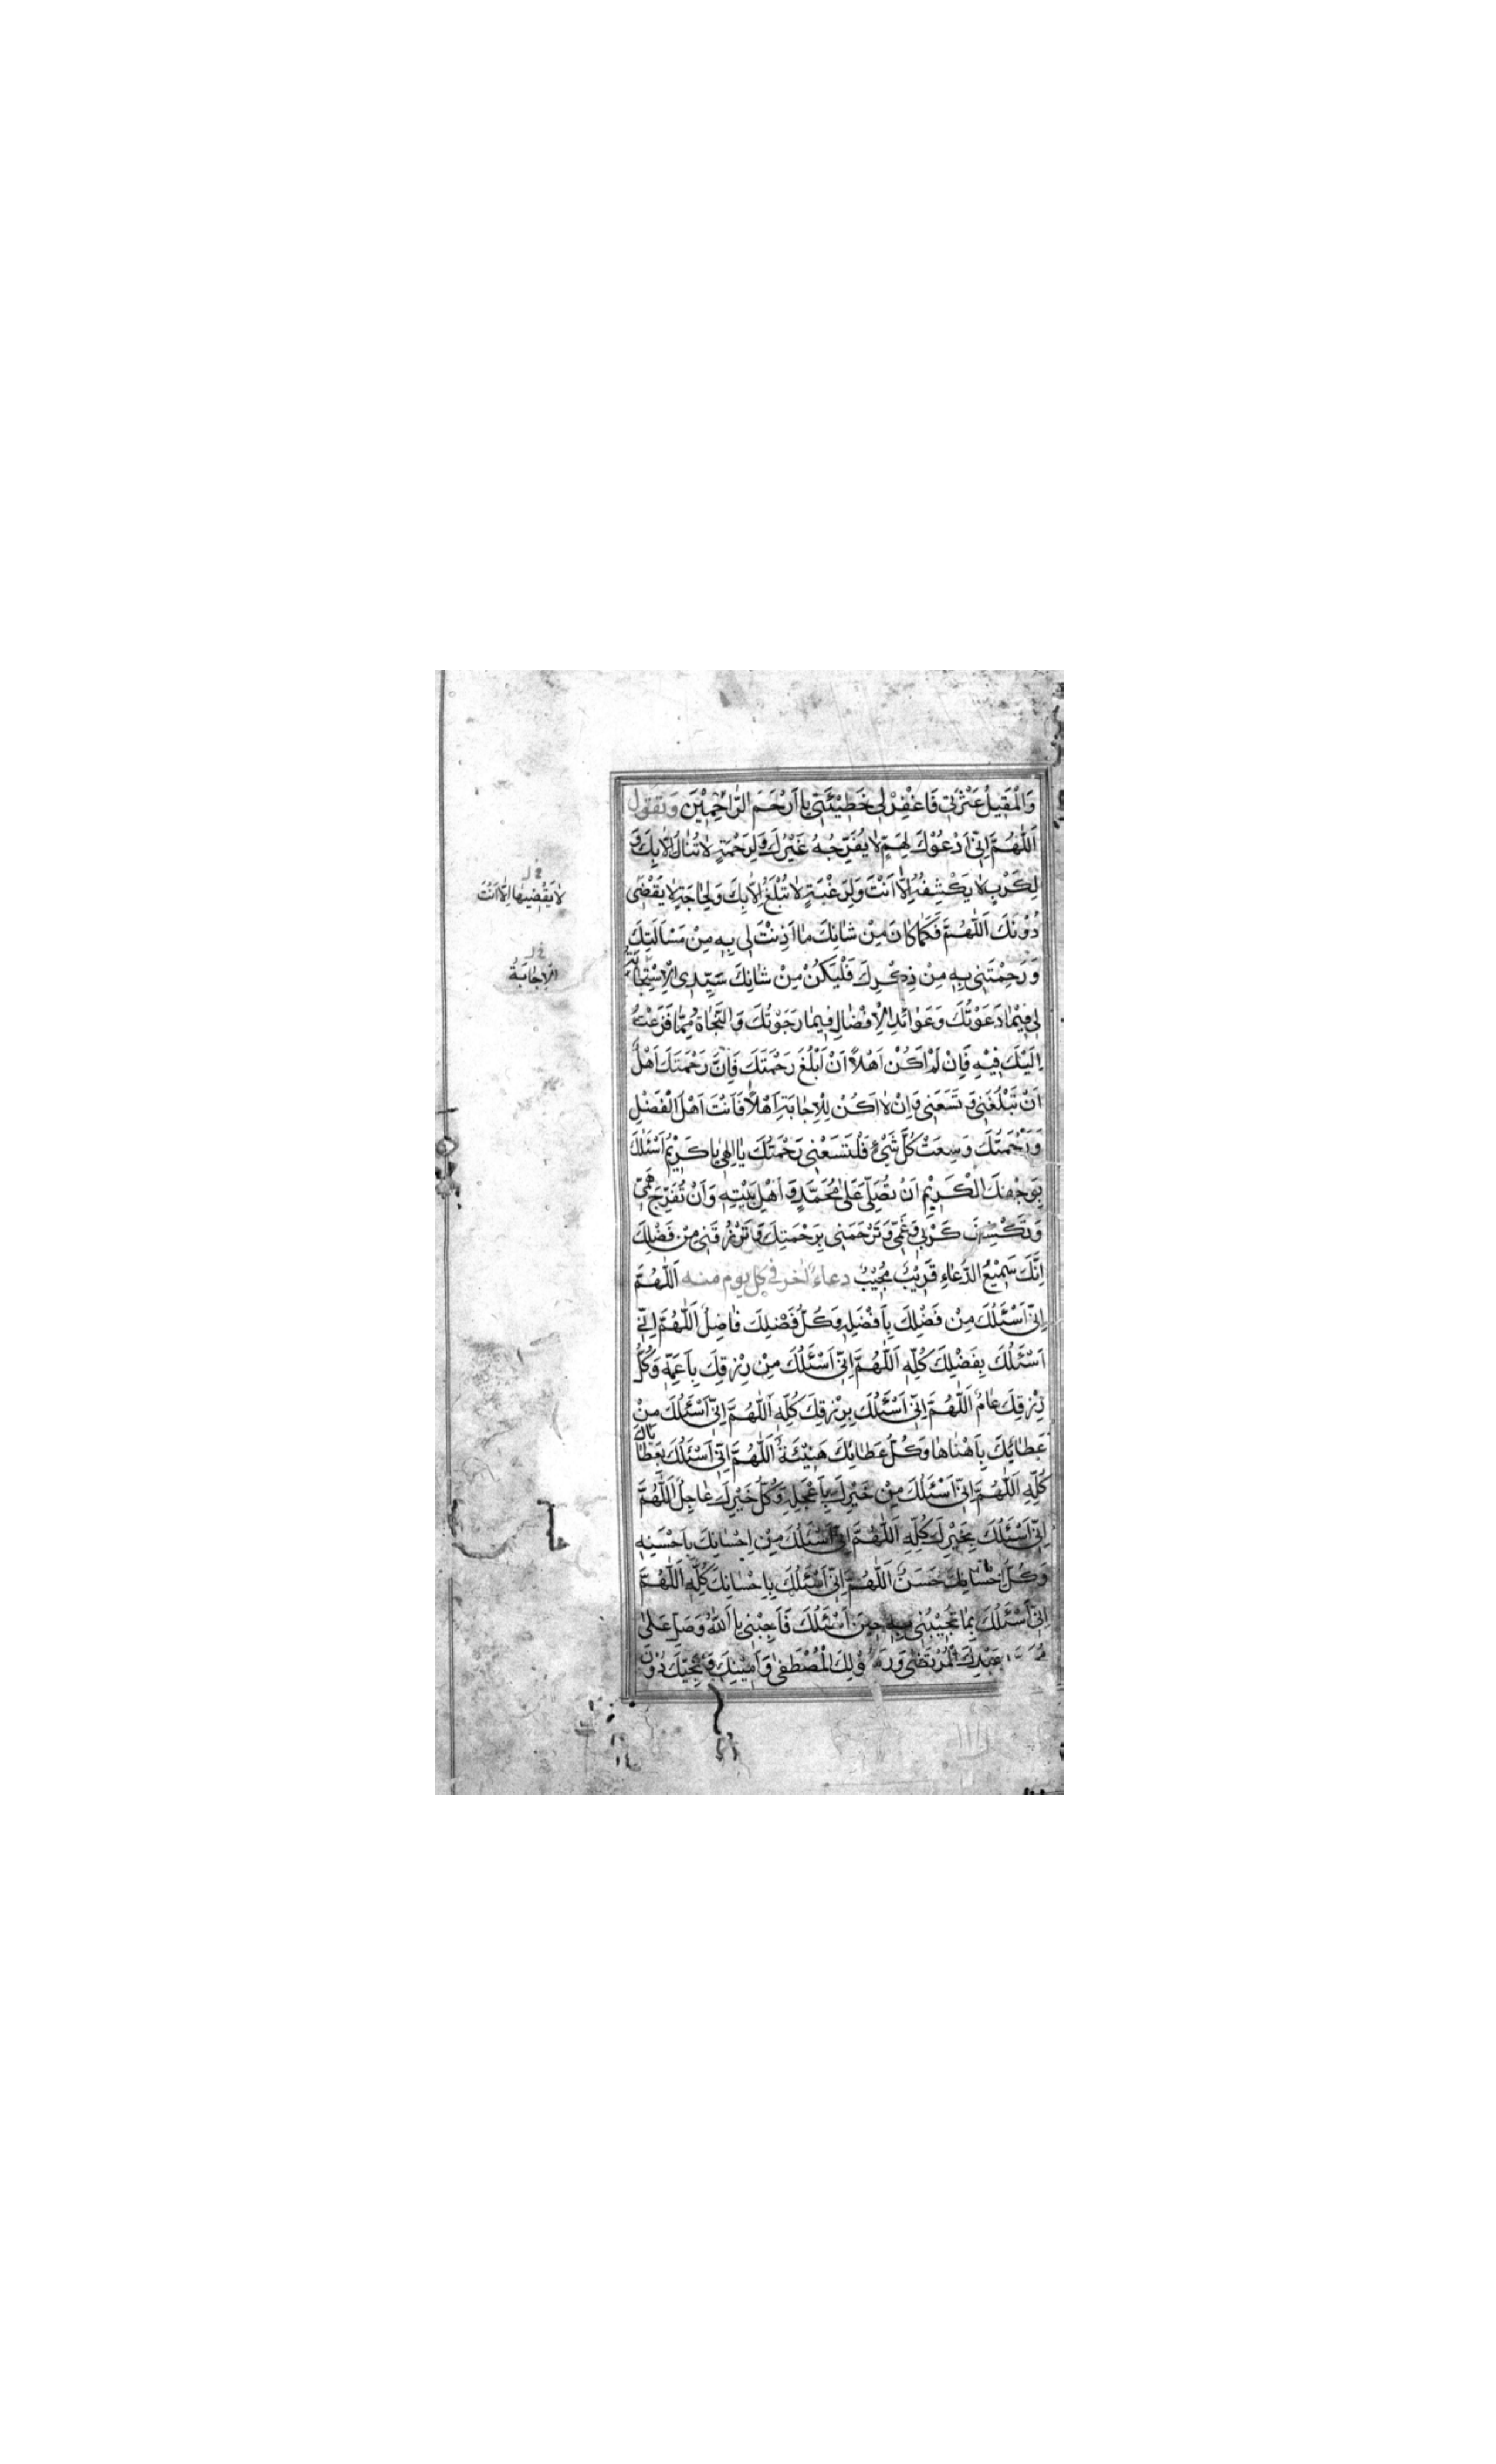 وَالْمُقِيلُ عَثْرَتِي فَاغْفِرْ لِي خَطِيئَتِي يَا اَرْحَمَ الرَّاحِمِيْنَ وتقول
اَللّٰهُمَّ اِنِّي اَدْعُوْكَ لِهَمٍّ لَا يُفَرِّجُهُ غَيْرُكَ وَلِرَحْمَةٍ لَا تُنَالُ اِلَّا بِكَ وَ
لِكَرْبٍ لَا يَكْشِفُهُ اِلَّا اَنْتَ وَلِرَغْبَةٍ لَا تُبْلَغُ اِلَّا بِكَ وَلِحَاجَةٍ لَا يَقْضٰى
لَا يَقْضِيهَا اِلَّا اَنْتَ
دُوْنَكَ اَللّٰهُمَّ فَكَمَا كَانَ مِنْ شَانِكَ مَا اَذِنْتَ لِي بِهِ مِنْ مَسْاَلَتِكَ
وَرَحِمْتَنِي بِهِ مِنْ ذِكْرِكَ فَلْيَكُنْ مِنْ شَانِكَ سَيِّدِى الْاِسْتِجَابَةُ
الْاِجَابَةُ
لِي فِيْمَا دَعَوْتُكَ وَعَوَائِدُ الْاِفْضَالِ فِيمَا رَجَوْتُكَ وَالنَّجَاةُ مِمَّا فَزِعْتُ
اِلَيْكَ فِيْهِ فَاِنْ لَمْ اَكُنْ اَهْلًا اَنْ اَبْلُغَ رَحْمَتَكَ فَاِنَّ رَحْمَتَكَ اَهْلٌ
اَنْ تَبْلُغَنِي وَتَسَعَنِي وَاِنْ لَا اَكُنْ لِلْاِجَابَةِ اَهْلًا فَاَنْتَ اَهْلُ الْفَضْلِ
وَرَحْمَتُكَ وَسِعَتْ كُلَّ شَيْءٍ فَلْتَسَعْنِي رَحْمَتُكَ يَا اِلٰهِي يَا كَرِيْمُ اَسْئَلُكَ
بِوَجْهِكَ الْكَرِيْمِ اَنْ تُصَلِّيَ عَلٰى مُحَمَّدٍ وَاَهْلِ بَيْتِهِ وَاَنْ تُفَرِّجَ هَمِّي
وَتَكْشِفَ كَرْبِي وَغَمِّي وَتَرْحَمَنِي بِرَحْمَتِكَ وَتَرْزُقَنِي مِنْ فَضْلِكَ
اِنَّكَ سَمِيْعُ الدُّعَاءِ قَرِيْبٌ مُجِيْبٌ دعاء اخر في كل يوم منه اَللّٰهُمَّ
اِنِّي اَسْئَلُكَ مِنْ فَضْلِكَ بِاَفْضَلِهِ وَكُلُّ فَضْلِكَ فَاضِلٌ اَللّٰهُمَّ اِنِّي
اَسْئَلُكَ بِفَضْلِكَ كُلِّهِ اَللّٰهُمَّ اِنِّي اَسْئَلُكَ مِنْ رِزْقِكَ بِاَعَمِّهِ وَكُلُّ
رِزْقِكَ عَامٌّ اَللّٰهُمَّ اِنِّي اَسْئَلُكَ بِرِزْقِكَ كُلِّهِ اَللّٰهُمَّ اِنِّي اَسْئَلُكَ مِنْ
عَطَائِكَ بِاَهْنَاهَا وَكُلُّ عَطَائِكَ هَنِيْئَةٌ اَللّٰهُمَّ اِنِّي اَسْئَلُكَ بِعَطَائِكَ
كُلِّهِ اَللّٰهُمَّ اِنِّي اَسْئَلُكَ مِنْ خَيْرِكَ بِاَعْجَلِهِ وَكُلُّ خَيْرِكَ عَاجِلٌ اَللّٰهُمَّ
اِنِّي اَسْئَلُكَ بِخَيْرِكَ كُلِّهِ اَللّٰهُمَّ اِنِّي اَسْئَلُكَ مِنْ اِحْسَانِكَ بِاَحْسَنِهِ
وَكُلُّ اِحْسَانِكَ حَسَنٌ اَللّٰهُمَّ اِنِّي اَسْئَلُكَ بِاِحْسَانِكَ كُلِّهِ اَللّٰهُمَّ
اِنِّي اَسْئَلُكَ بِمَا تُجِيْبُنِي بِهِ حِيْنَ اَسْئَلُكَ فَاَجِبْنِي يَا اَللّٰهُ وَصَلِّ عَلٰى
عَبْدِكَ الْمُرْتَضٰى وَرَسُوْلِكَ الْمُصْطَفٰى وَاَمِيْنِكَ وَنَجِيِّكَ دُوْنَ